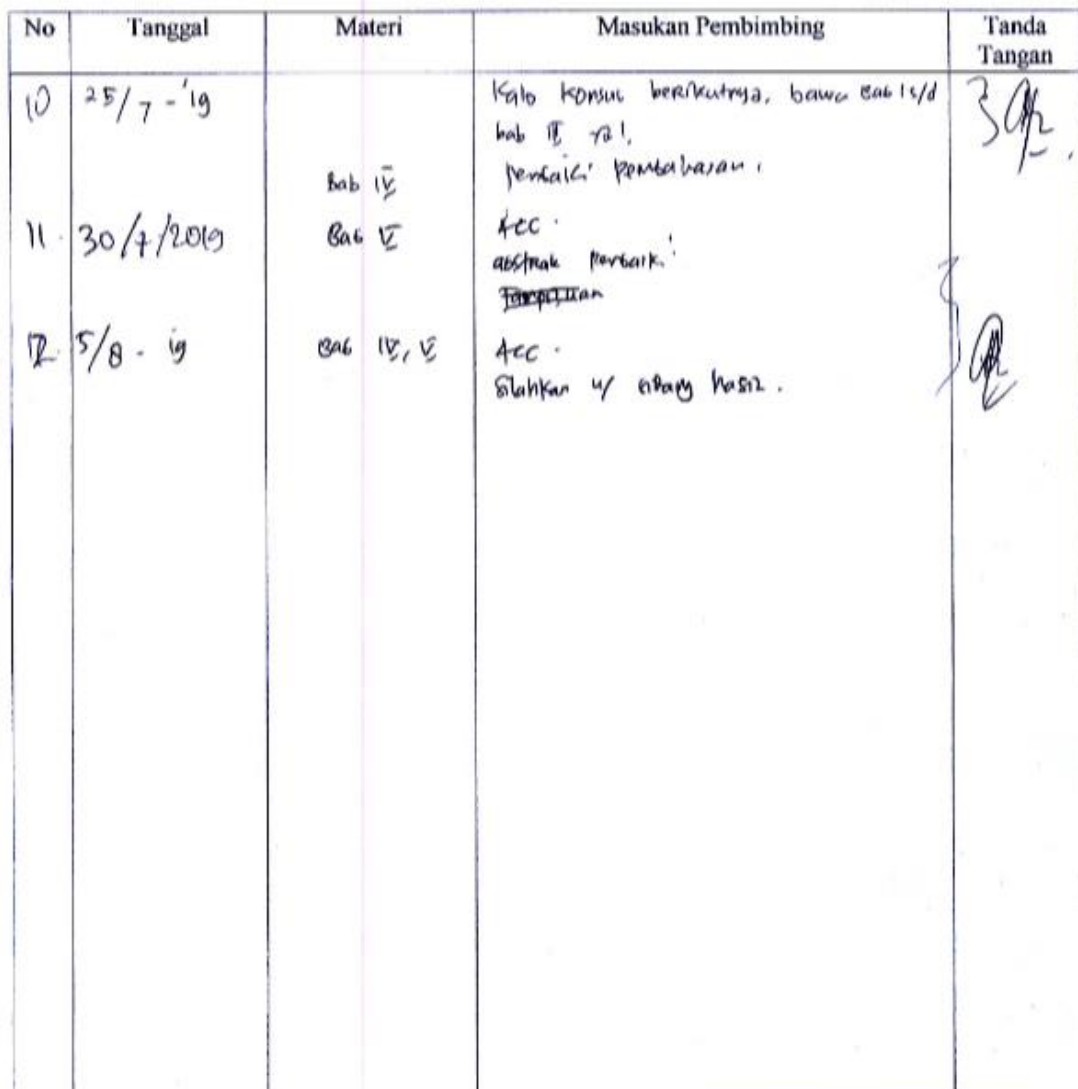 No Tanggal Materi Masukan Pembimbing Tanda Tangan
10 25/7-'19 Kalo konsul berikutnya, bawa Bab I s/d
bab III ya!
Bab IV Perbaiki pembahasan.
11. 30/7/2019 Bab V Acc.
abstrak perbaiki
12. 5/8-19 Bab IV, V Acc.
Silahkan u/ sidang hasil.